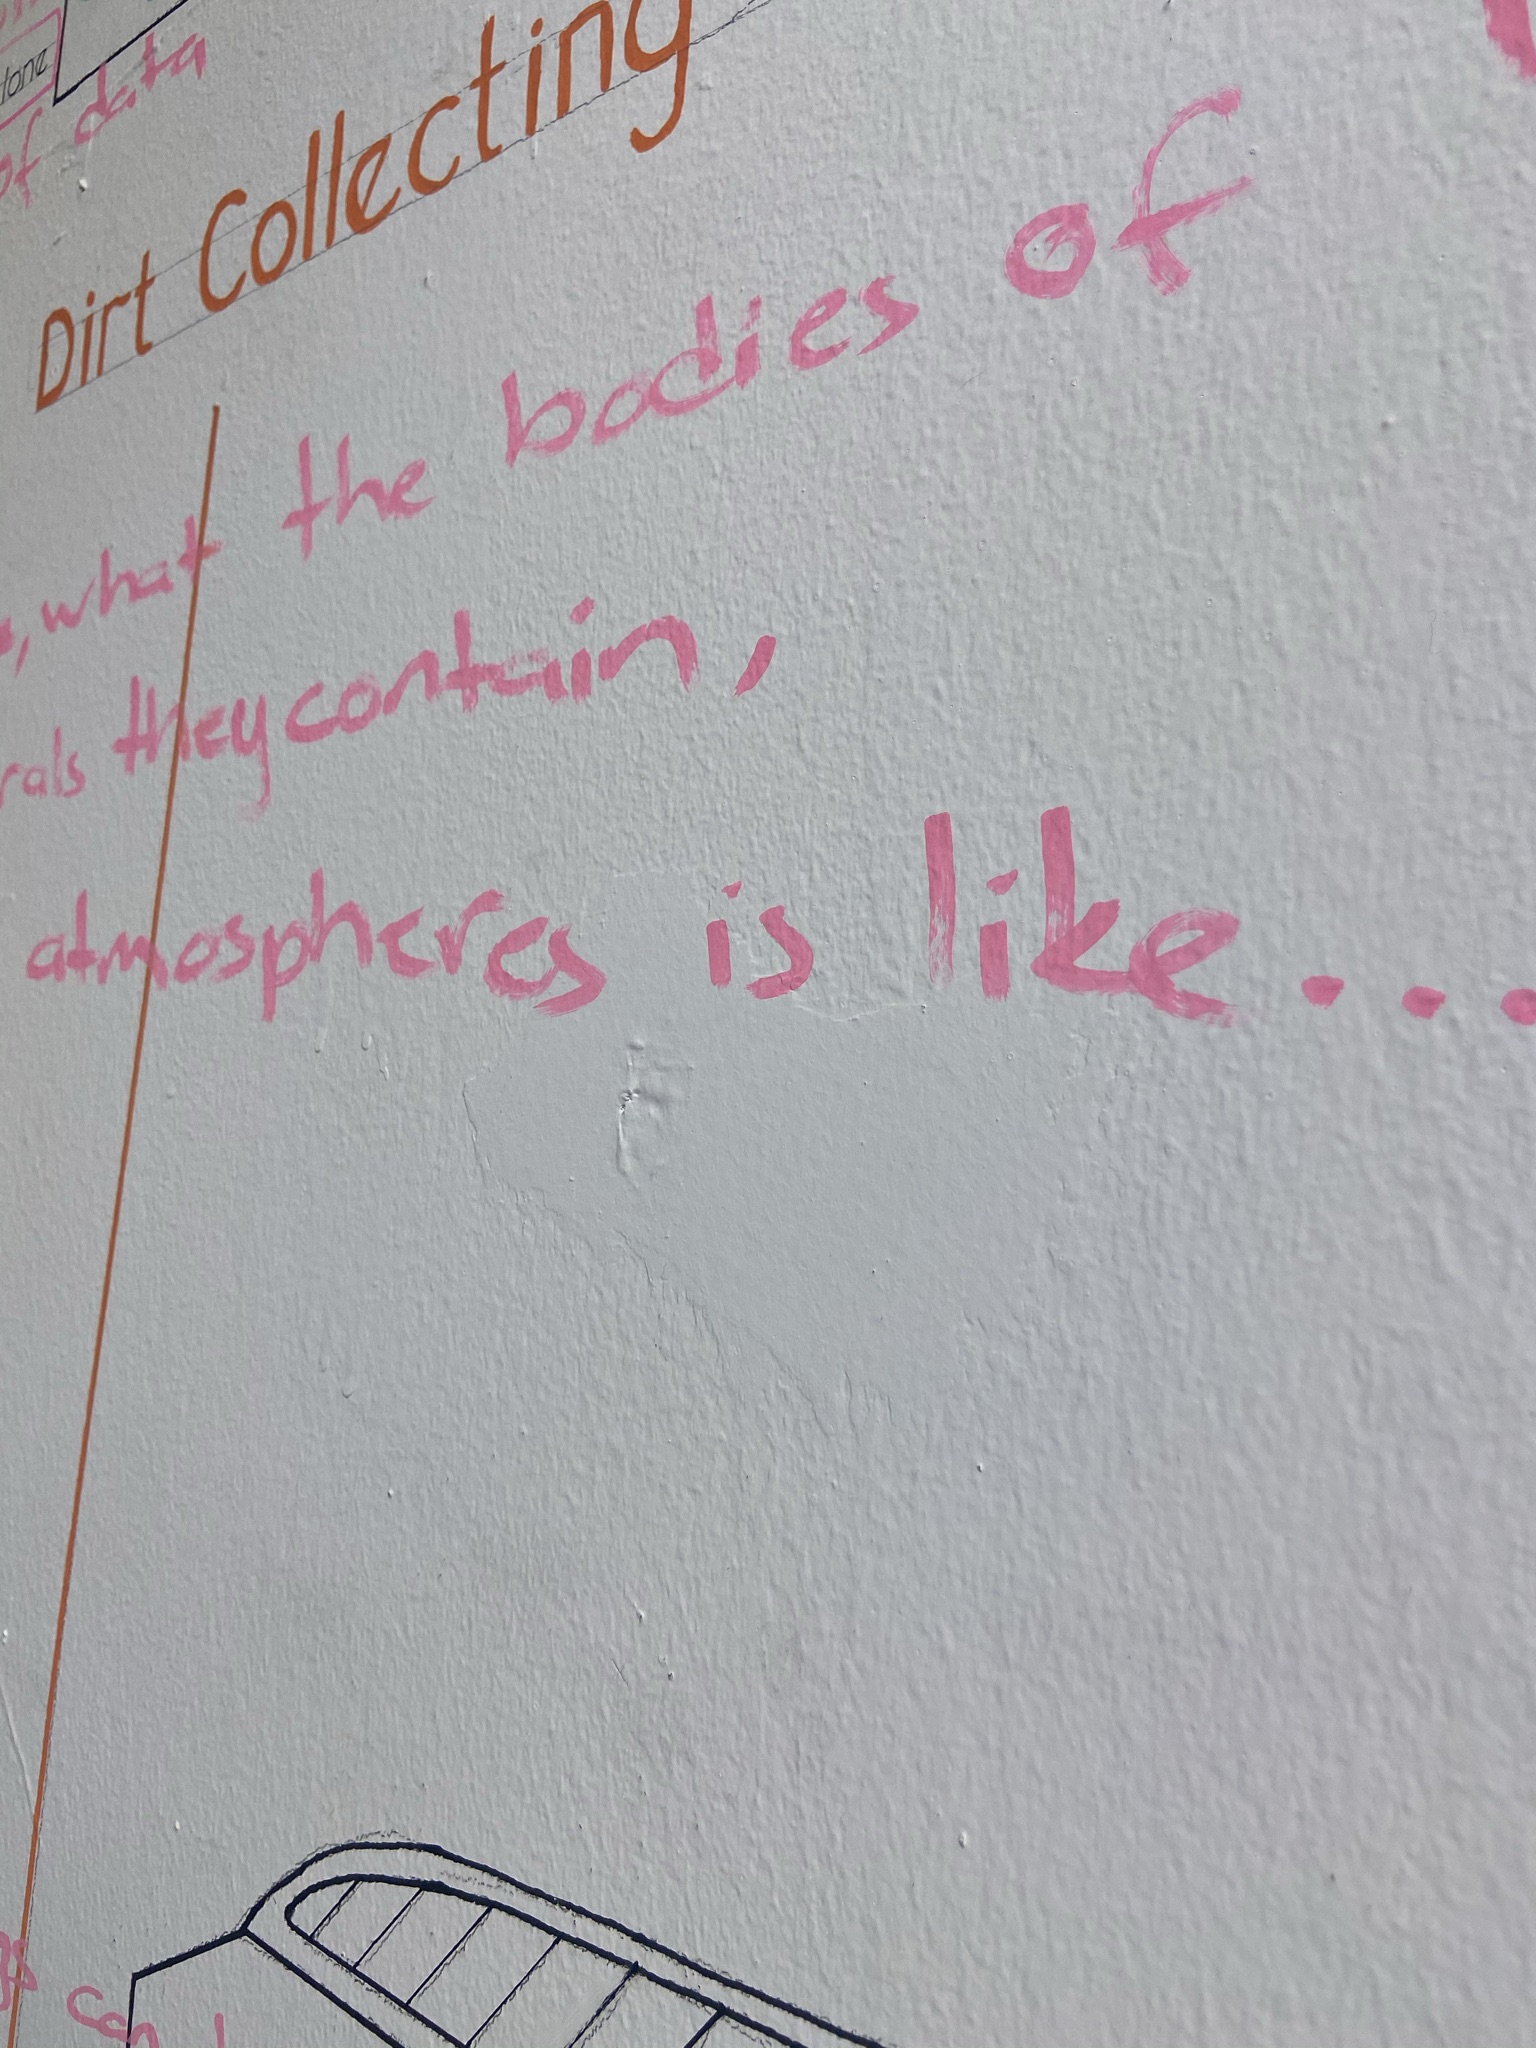 of data
Dirt Collecting
what the bodies of
they contain,
atmospheres is like...